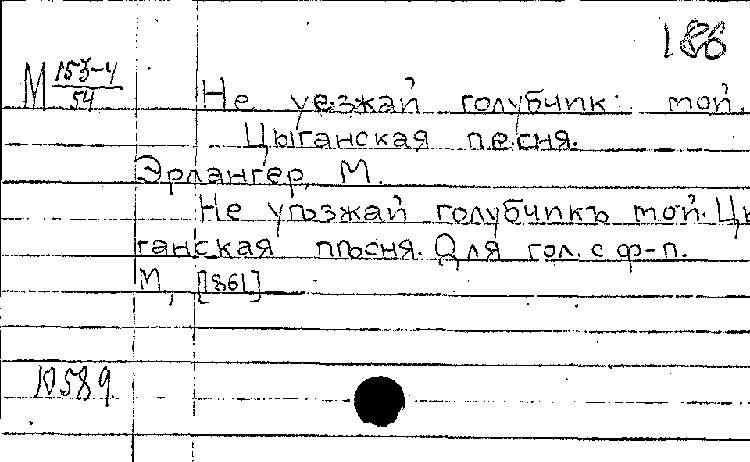 186
М 153-4/54
Не уезжай голубчик мой.
Цыганская песня.
Эрлангер, М.
Не уѣзжай голубчикъ мой. Цы
ганская пѣсня. Для гол. с ф-п.
М, [1861]
10589